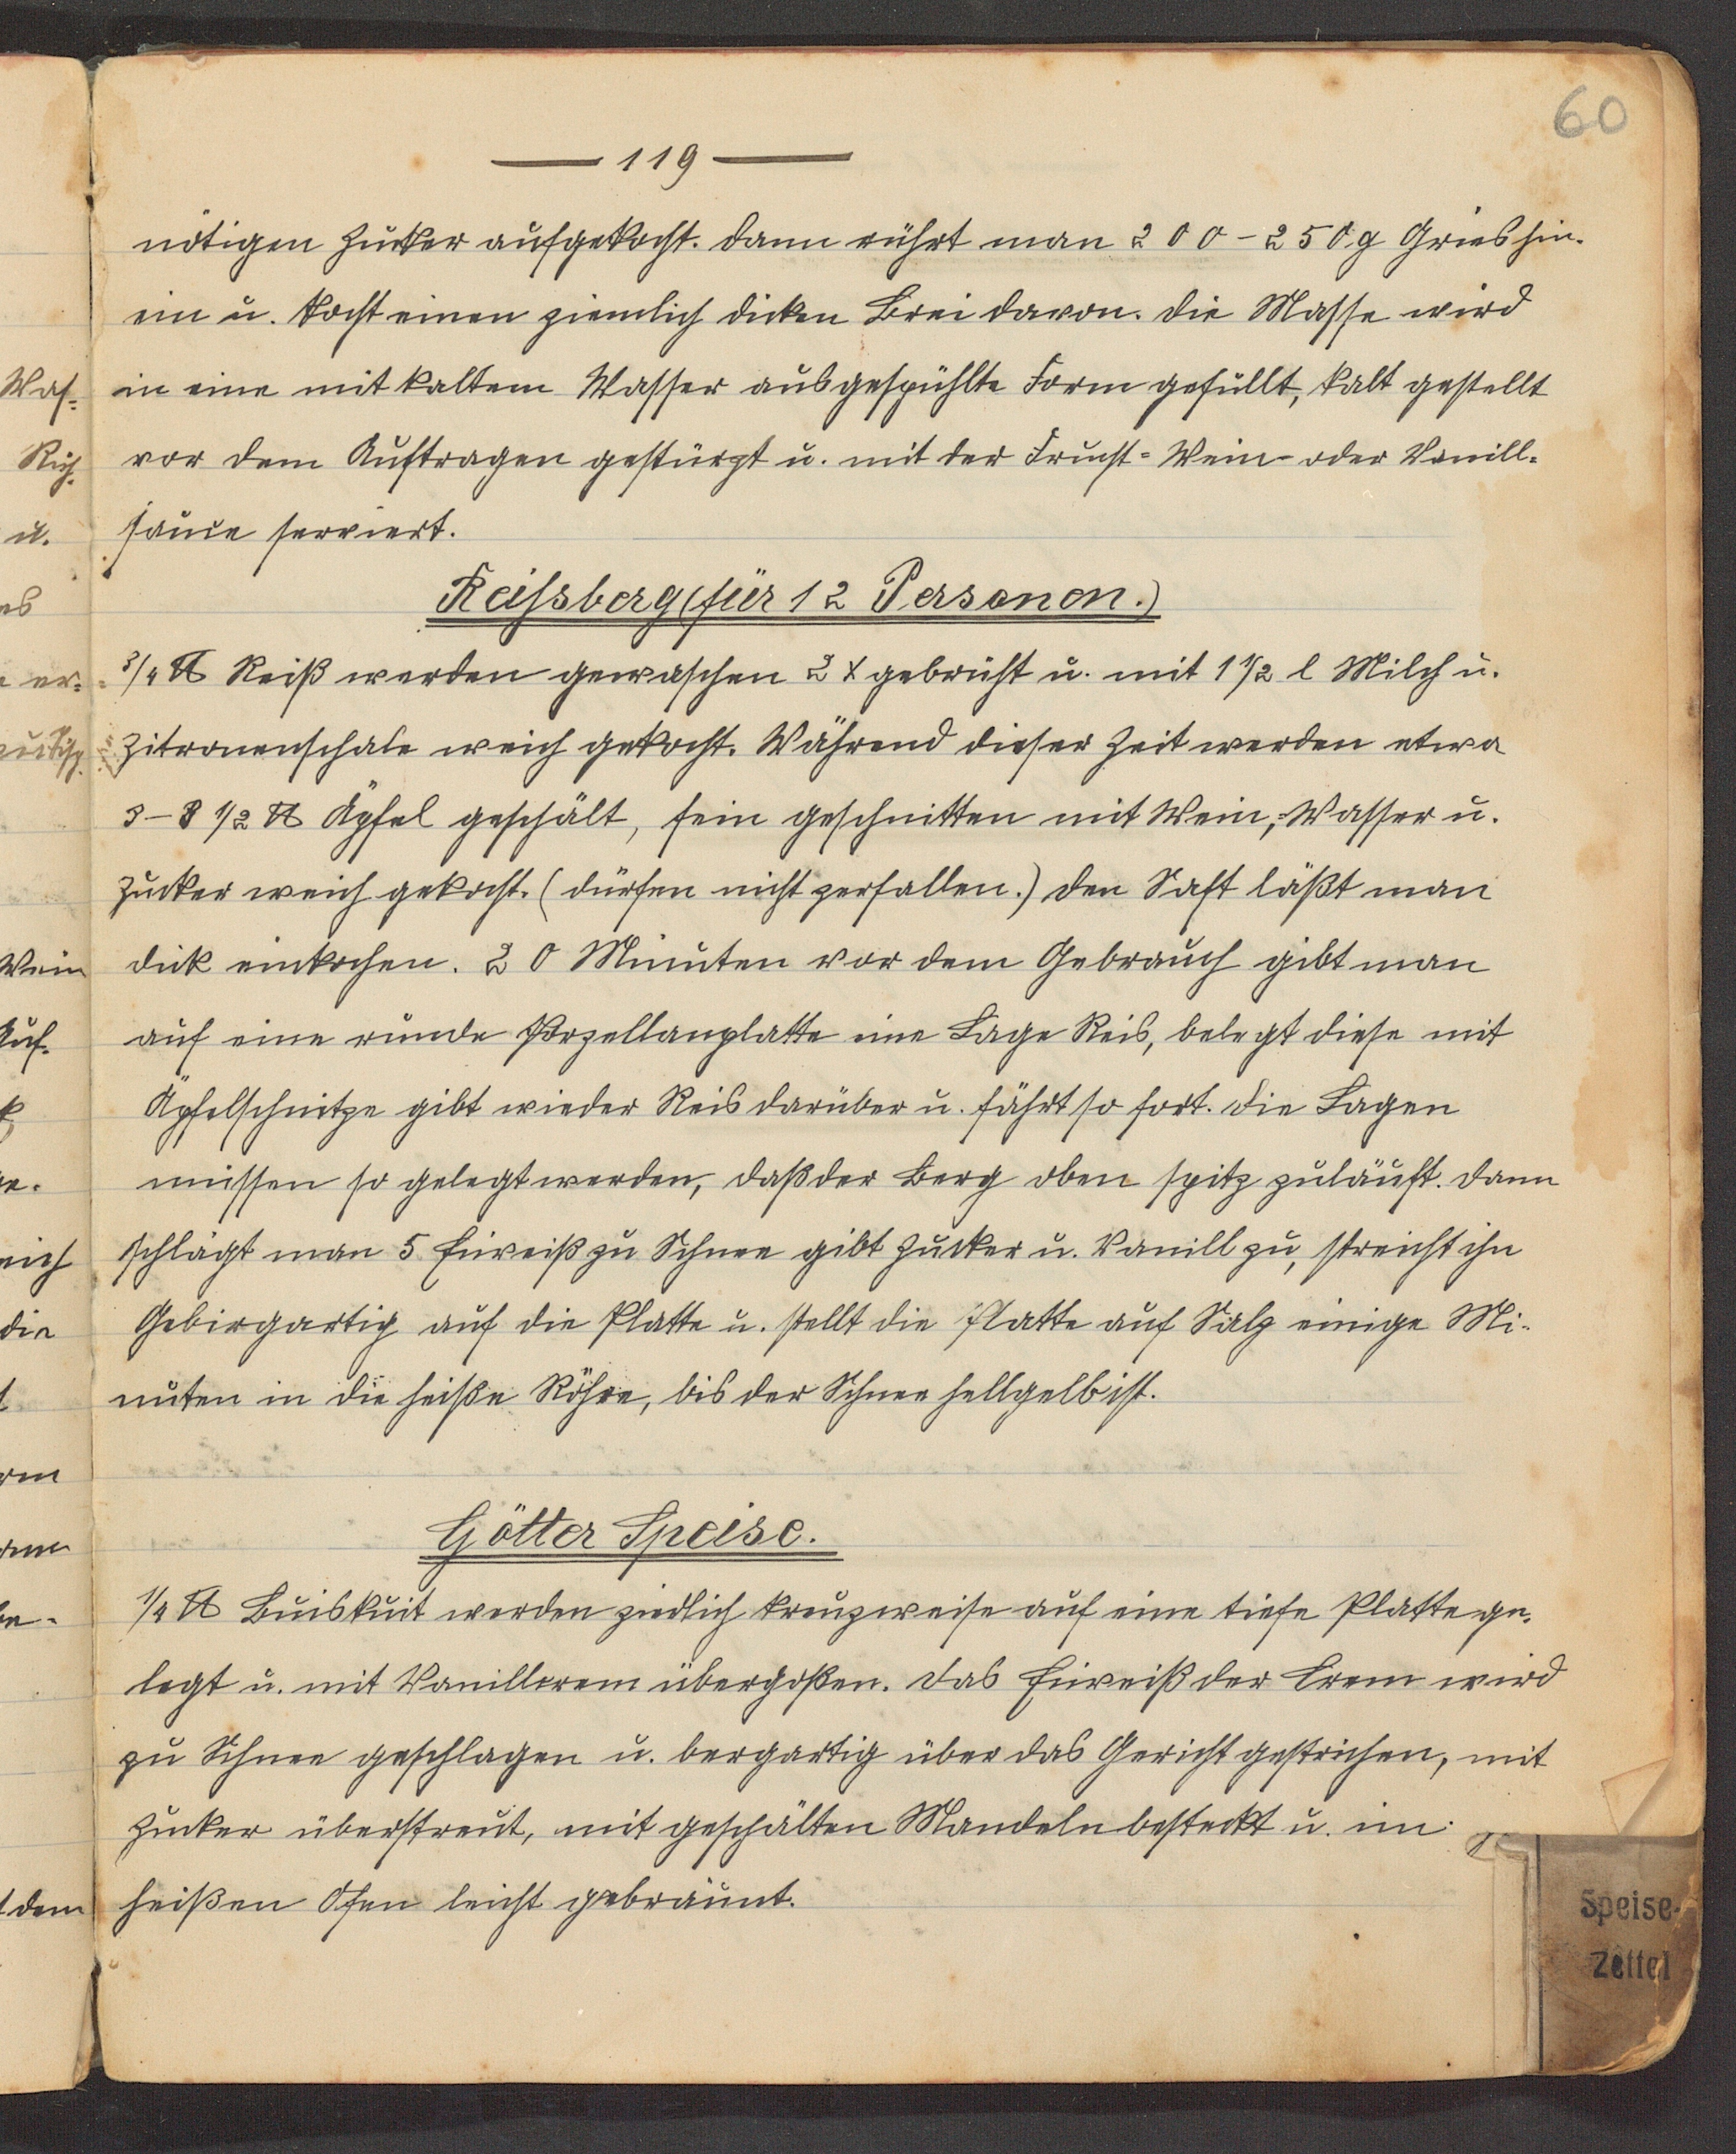 60
— 119 —
nötigen Zucker aufgekocht. Dann rührt man 200-250 g Grieshin-
ein u. kocht einen ziemlich dicken Brei davon. Die Masse wird
in eine mit kaltem Wasser ausgespühlte Form gefüllt, kalt gestellt
vor dem Auftragen gestürzt u. mit der Frucht- Wein- oder Vanill-
sauce serviert.
Reissberg (für 12 Personen.)
3/4 ℔ Reiß werden gewaschen 2 x gebrüht u. mit 1 1/2 l Milch u.
Zitronenschale weich gekocht. Während dieser Zeit werden etwa
3-3 1/2 ℔ Äpfel geschält, fein geschnitten mit Wein, Wasser u.
Zucker weich gekocht. (dürfen nicht zerfallen.) Den Saft läßt man
dick einkochen. 20 Minuten vor dem Gebrauch gibt man
auf eine runde Porzellanplatte eine Lage Reis, belegt diese mit
Äpfelschnitze gibt wieder Reis darüber u. fährt so fort. Die Lagen
müssen so gelegt werden, daß der Berg oben spitz zuläuft. Dann
schlägt man 5 Eiweiß zu Schnee gibt Zucker u. Vanill zu, streicht ihn
Gebirgartig auf die Platte u. stellt die Platte auf Salz einige Mi-
nuten in die heiße Röhre, bis der Schnee hellgelb ist.
Götter Speise.
1/4 ℔ Buiskuit werden ziedlich kreuzweise auf eine tiefe Platte ge-
legt u. mit Vanillcrem übergoßen. Das Eiweiß der Crem wird
zu Schnee geschlagen u. bergartig über das Gericht gestrichen, mit
Zucker überstreut, mit geschälten Mandeln besteckt u. im
heißen Ofen leicht gebräunt.
Speise-
Zettel